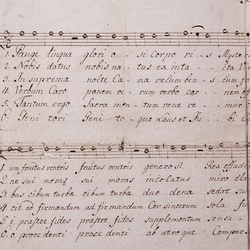 1 Pange lingua glori o - si Corpo ri - s Myste
2. Nobis datus nobis na - tus ex inta
3. In suprema nocte Cæ - na recumben - s cum
4. Verbum Caro panem ve - rum verbo car - nem
5. Tantum ergo Sacra men - tum vene re - mur
6. Geni tori Geni to - que Laus et Ju - bi
1. um fructus ventris fructus ventris generosi Rex effudit
2. ne sui moras sui moras incolatus miro
cibum turbæ cibum turbæ duo denæ se dat su
4 cit ad firmandum ad firmandum Cor sincerum sola
5 i præstet fides præstet fides supplementum Sensu
6 o proce denti proce denti ab utroque Compar